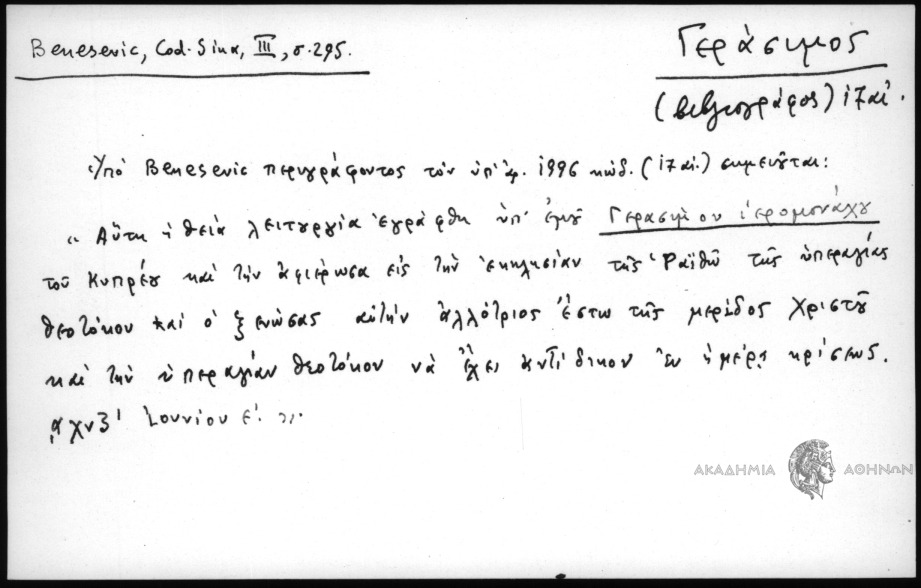 Benesevic, Cod. Sina, III, σ. 295.
Γεράσιμος
(βιβλιογράφος) ιζ αἰ.
Ὑπὸ Benesevic περιγράφοντος τὸν ὑπ' ἀρ. 1996 κώδ. (ιζ αἰ.) σημειοῦται:
« Αὕτη ἡ θεία λειτουργία ἐγράφθη ὑπ' ἐμοῦ Γερασίμου ἱερομονάχου
τοῦ Κυπρέου καὶ τὴν ἀφιέρωσα εἰς τὴν ἐκκλησίαν τῆς Ῥαϊθοῦ τῆς ὑπεραγίας
θεοτόκου καὶ ὁ ξενώσας αὐτὴν ἀλλότριος ἔστω τῆς μερίδος Χριστοῦ
καὶ τὴν ὑπεραγίαν θεοτόκον νὰ ἔχει ἀντίδικον ἐν ἡμέρᾳ κρίσεως.
͵αχνζ' Ἰουνίου ε'. »
ΑΚΑΔΗΜΙΑ ΑΘΗΝΩΝ